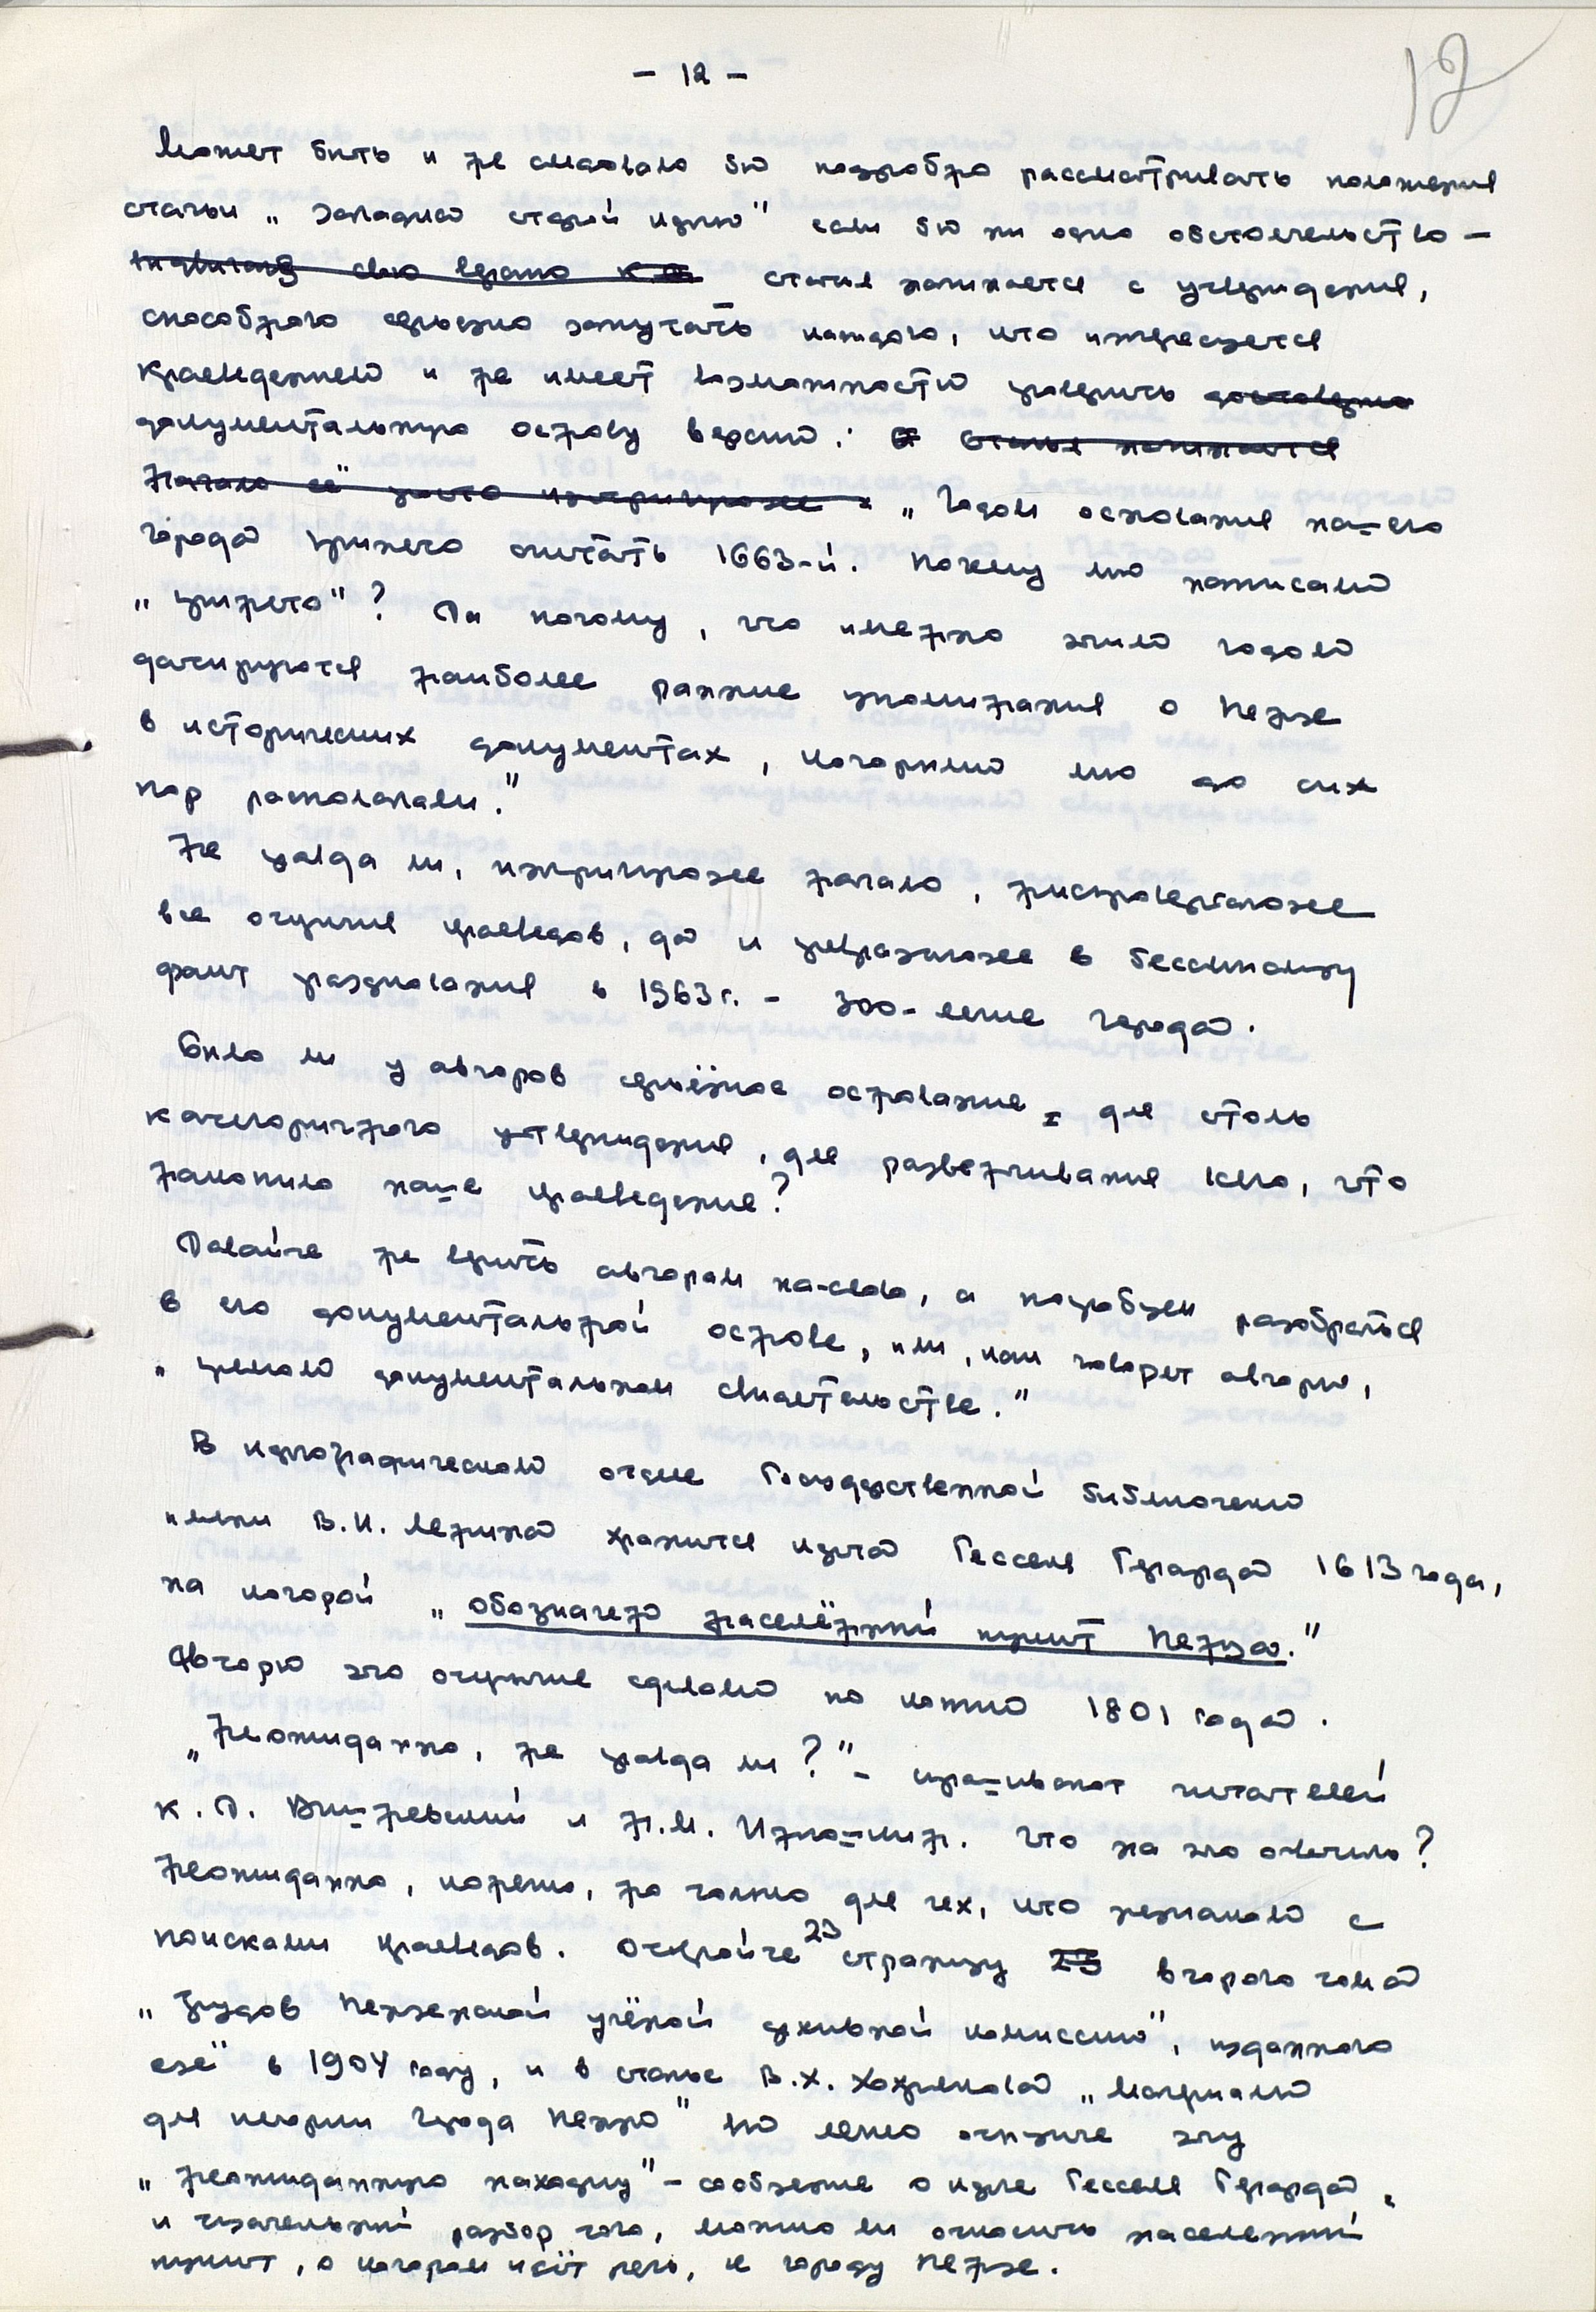 12
- 12 -
Может быть и не следовало бы подробно рассматривать положения
статьи „Загадка старой карты" если бы ни одно обстоятельство -
статья начинается с утверждения,
способного серьезно запутать каждого, кто интересуется
краеведением и не имеет возможности проверить достоверно
документальную основу версии: Статья начинается
Начало её чисто интригующее „Годом основания нашего
города принято считать 1663-й. Почему мы написали
„принято"? Да потому, что именно этим годом
датируются наиболее ранние упоминания о Пензе
в исторических документах, которыми мы до сих
пор располагали."
Не правда ли, интригующее начало, ниспровергающее
все открытия краеведов, да и превращающее в бессмыслицу
факт празднования в 1963 г. - 300-летие города.
Было ли у авторов серьёзное основание для столь
категоричного утверждения, для развенчивания всего, что
накопило наше краеведение?
Давайте не верить авторам на-слово, а попробуем разобраться
в его документальной основе, или, как говорят авторы,
„прямом документальном свидетельстве."
В картографическом отделе Государственной библиотеки
имени В.И. Ленина хранится карта Гесселя Герарда 1613 года,
на которой „обозначен населённый пункт Пенза."
Авторы это открытие сделали по копии 1801 года.
„Неожиданно, не правда ли?" - спрашивают читателей
К.Д. Вишневский и Н.М. Инюшкин. Что на это ответить?
Неожиданно, конечно, но только для тех, кто незнаком с
поисками краеведов. Откройте 23 страницу 23 второго тома
„Трудов Пензенской учёной архивной комиссии", изданного
ещё в 1904 году, и в статье В.Х. Хохрякова „Материалы
для истории города Пензы" вы легко отыщите эту
„неожиданную находку" - сообщение о карте Гесселя Герарда,
и тщательный разбор того, можно ли относить населенный
пункт, о котором идёт речь, к городу Пензе.